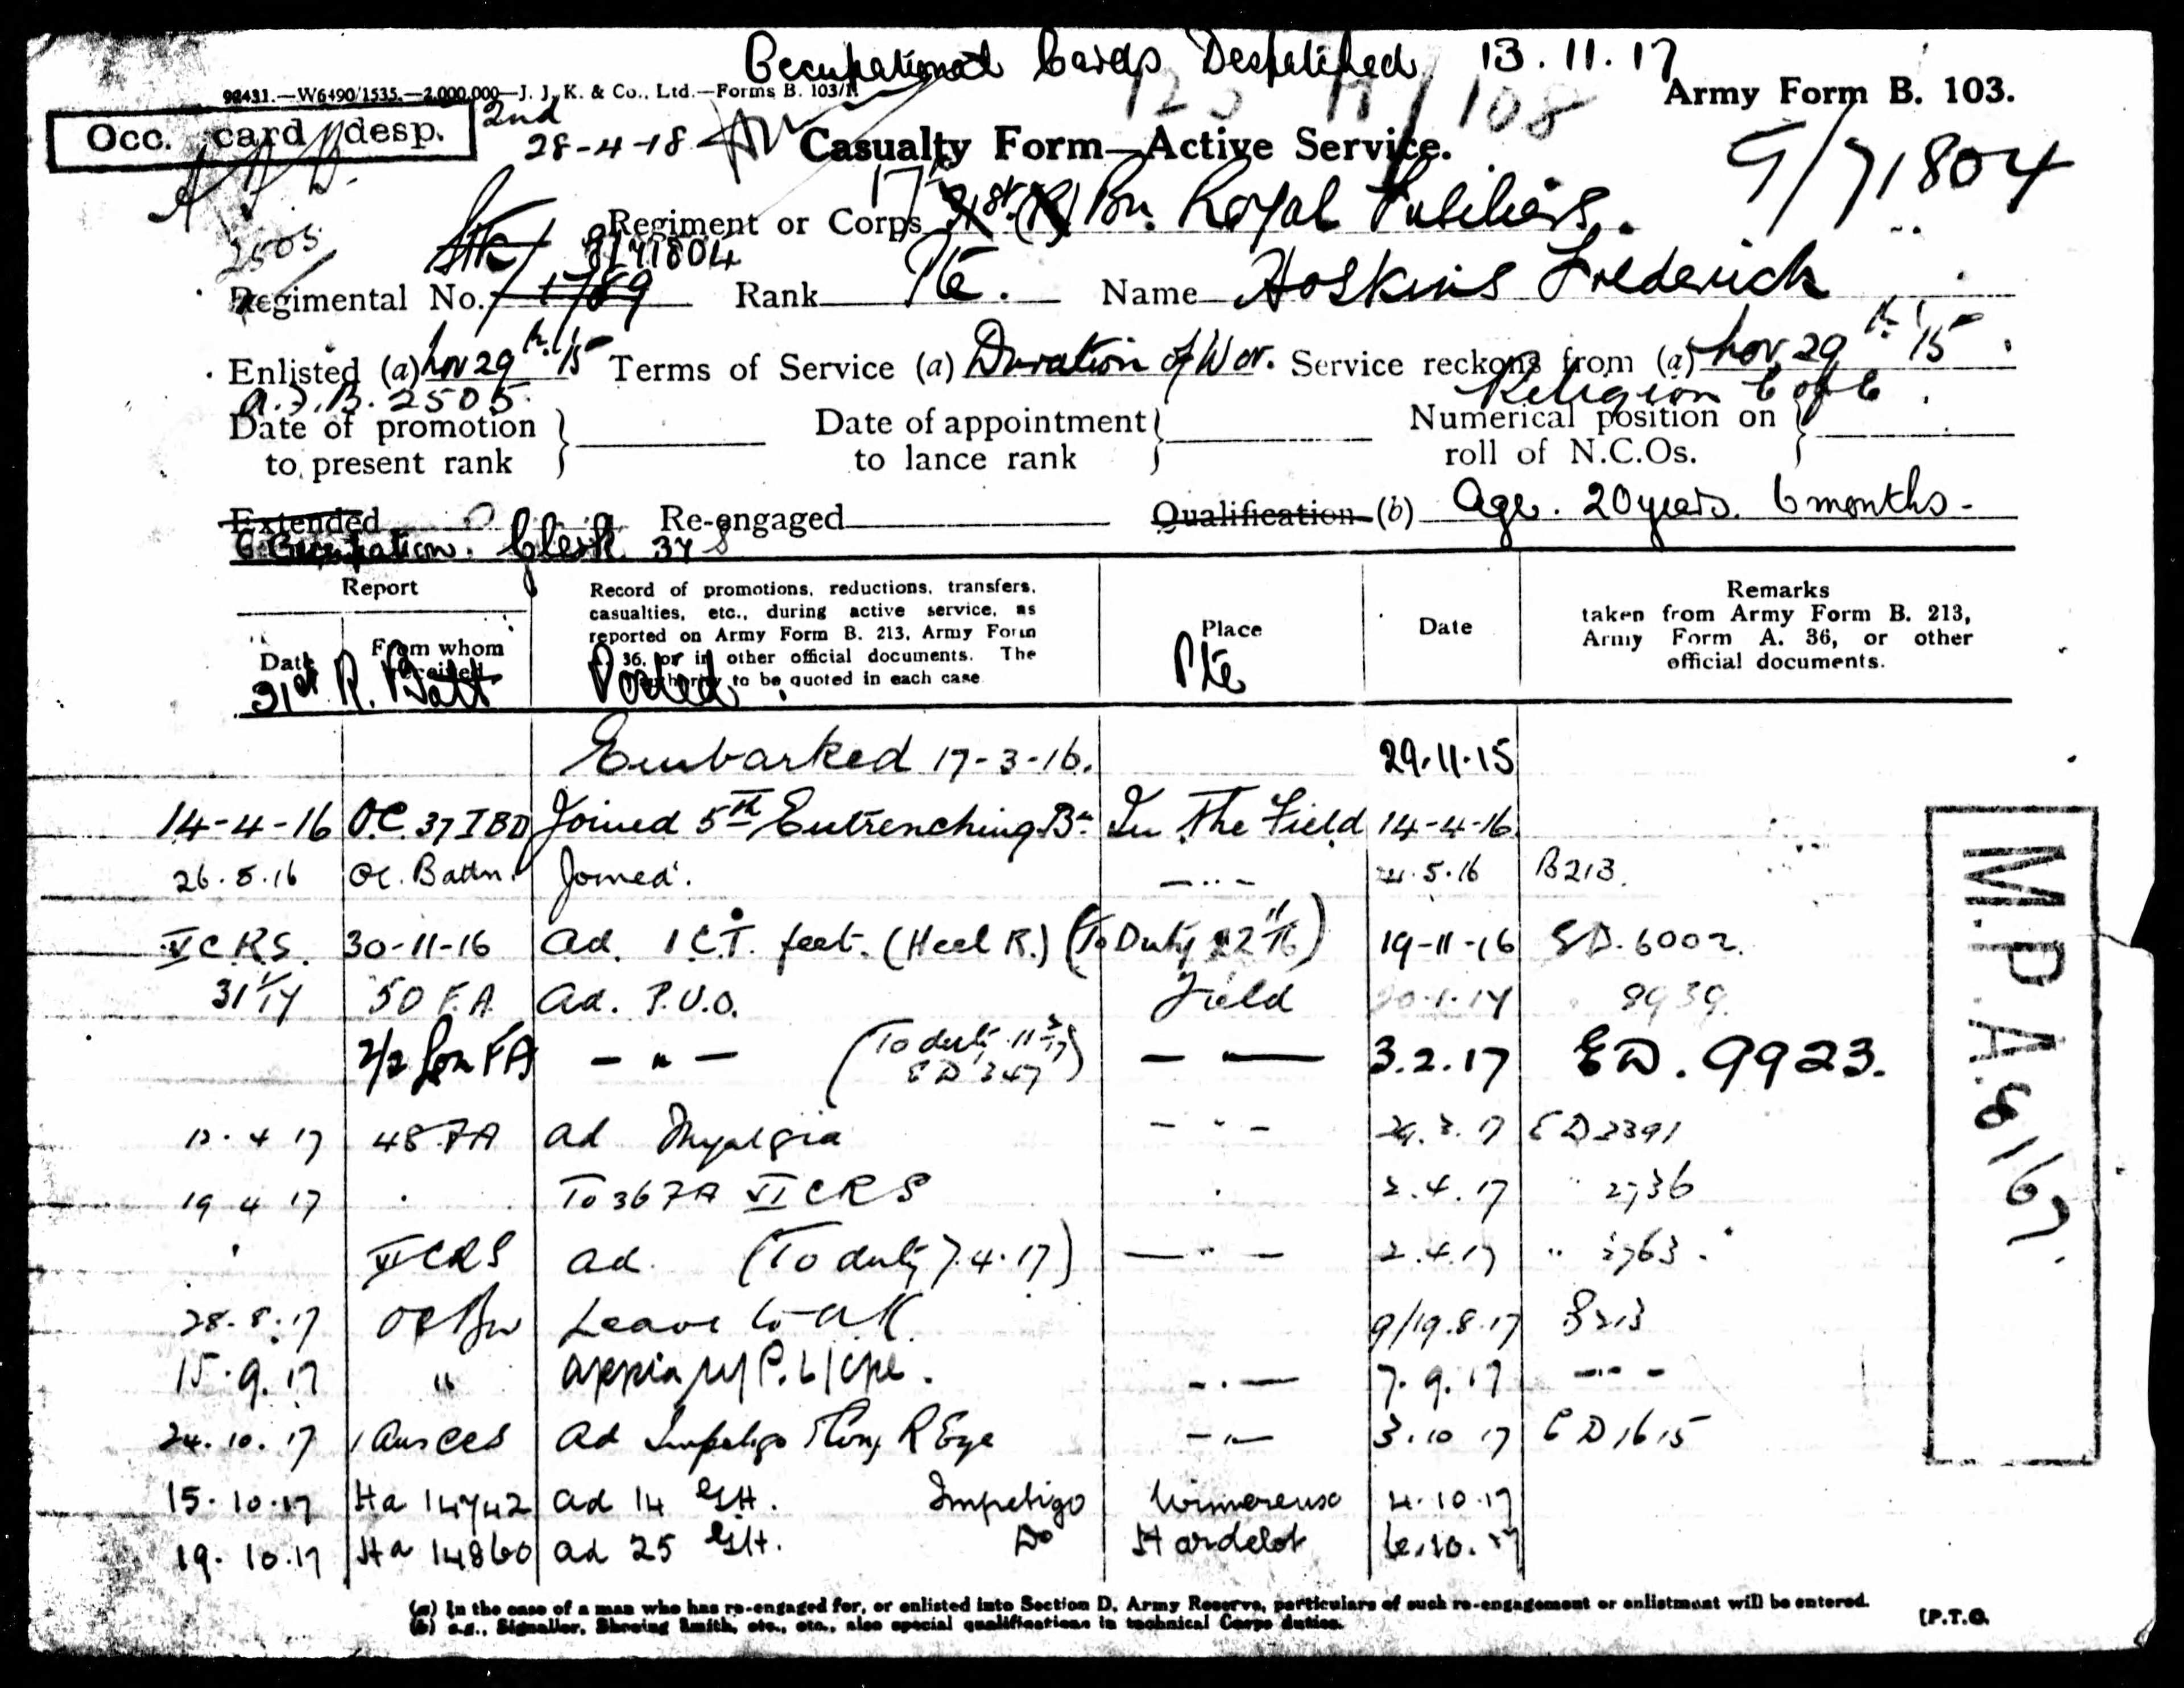 Occupational Cards Despatched 13.11.17
92431.—W6490/1535.—2,000,000—J. J. K. & Co., Ltd.—Forms B. 103/1
Army Form B. 103.
Occ. card desp.
2nd
28-4-18
Casualty Form—Active Service.
G/71804
2505
Regiment or Corps 17th 31st (R) Bn. Royal Fusiliers.
G/71804
Regimental No. Stk/1789 Rank Pte. Name Hoskins Frederick
Enlisted (a) Nov 29th 15 Terms of Service (a) Duration of War. Service reckons from (a) Nov 29th 15
A.F.B. 2505. Religion C of E.
Date of promotion to present rank
Date of appointment to lance rank
Numerical position on roll of N.C.Os.
Extended Re-engaged Qualification (b) Age. 20 years. 6 months-
Occupation. Clerk
Report
Date
From whom received
Record of promotions, reductions, transfers, casualties, etc., during active service, as reported on Army Form B. 213, Army Form 36, or in other official documents. The authority to be quoted in each case
Place
Date
Remarks taken from Army Form B. 213, Army Form A. 36, or other official documents.
31st R. Batt Posted Pte
Embarked 17-3-16. 29.11.15
14-4-16 O.C. 37 IBD Joined 5th Entrenching Bn In The Field 14-4-16
26.5.16 OC. Battn. Joined. —..— .5.16 B213.
V C.R.S. 30-11-16 ad. I.C.T. feet. (Heel R.) (To Duty 22 11/16) 19-11-16 ED. 6002.
31/1/17 50 F.A. Ad. P.U.O. Field 8939.
2/2 Lon FA — " — (To duty 11 2/17 ED 347) — — 3.2.17 ED. 9923.
4 17 48 FA ad Myalgia — " — 29.3.17 ED 2391
19 4 17 To 36 FA VI CRS 2.4.17 " 2736
VI CRS ad. (To duty 7.4.17) — " — 2.4.17 " 2763.
28.8.17 OC Bn Leave to UK. 9/19.8.17 B213
15.9.17 " L/Cpl. —.— 7.9.17 —..—
24.10.17 Aus CCS Ad Impetigo R Eye —"— 3.10 17 ED 1615
15.10.17 Ha 14742 ad 14 GH. Impetigo Wimereux 4.10.17
19.10.17 Ha 14860 ad 25 GH. Do Hardelot 6.10.17
M.P.A. 8/67.
(a) In the case of a man who has re-engaged for, or enlisted into Section D, Army Reserve, particulars of such re-engagement or enlistment will be entered.
(b) e.g., Signaller, Shoeing Smith, etc., etc., also special qualifications in technical Corps duties.
[P.T.O.